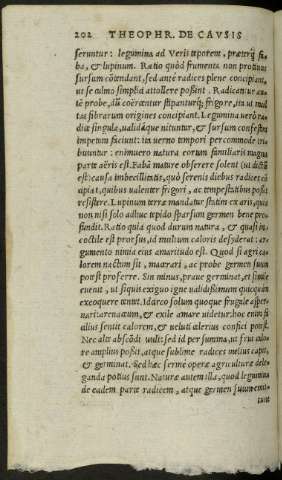 202 THEOPHR. DE CAVSIS
seruntur: legumina ad Veris teporem, præterq́; fa-
ba, & lupinum. Ratio quòd frumenta non protinus
sursum cõtendant, sed antè radices plene concipiant,
ut se culmo simplici attollere possint. Radicantur au-
tẽ probe, dũ coërcentur stipanturq́; frigore, ita ut mul
tas fibrarum origines concipiant. Legumina uerò ra-
dice singula, ualidaque nituntur, & sursum confestim
impetum faciunt: ita uerno tempori percommode tri-
buuntur: enimuero natura eorum familiaris magna
parte aëris est. Fabã mature obserere solent (ut dictũ
est) causa imbecillitatis, quò serenis diebus radices cõ
cipiat, quibus ualenter frigori, ac tempestatibus possit
resistere. Lupinum terræ mandatur statim ex aris, quia
non nisi solo adhuc tepido sparsum germen bene pro-
fundit. Ratio quia quod durum natura, & quasi in-
coctile est prorsus, id multum caloris desyderat: ar-
gumento nimia eius amaritudo est. Quod si agri ca-
lorem nactum sit, matrari, ac probe germen suum
potest proferre. Sin minus, praue germinat, et simile
euenit, ut siquis exiguo igne ualidissimum quicquam
excoquere tentet. Idcirco solum quoque frugale asper-
nari arenaceum, & exile amare uidetur: hoc enim si
allius sentit calorem, & ueluti celerius confici potest.
Nec altè abscõdi uult: sed id per summa, ut frui calo-
re amplius possit, atque sublime radices melius capit,
& germinat. Sed hæc fermè operæ agriculturæ dele-
ganda potius sunt. Naturæ autem illa, quod legumina
de eadem parte radicem, atque germen suum emit-
tunt